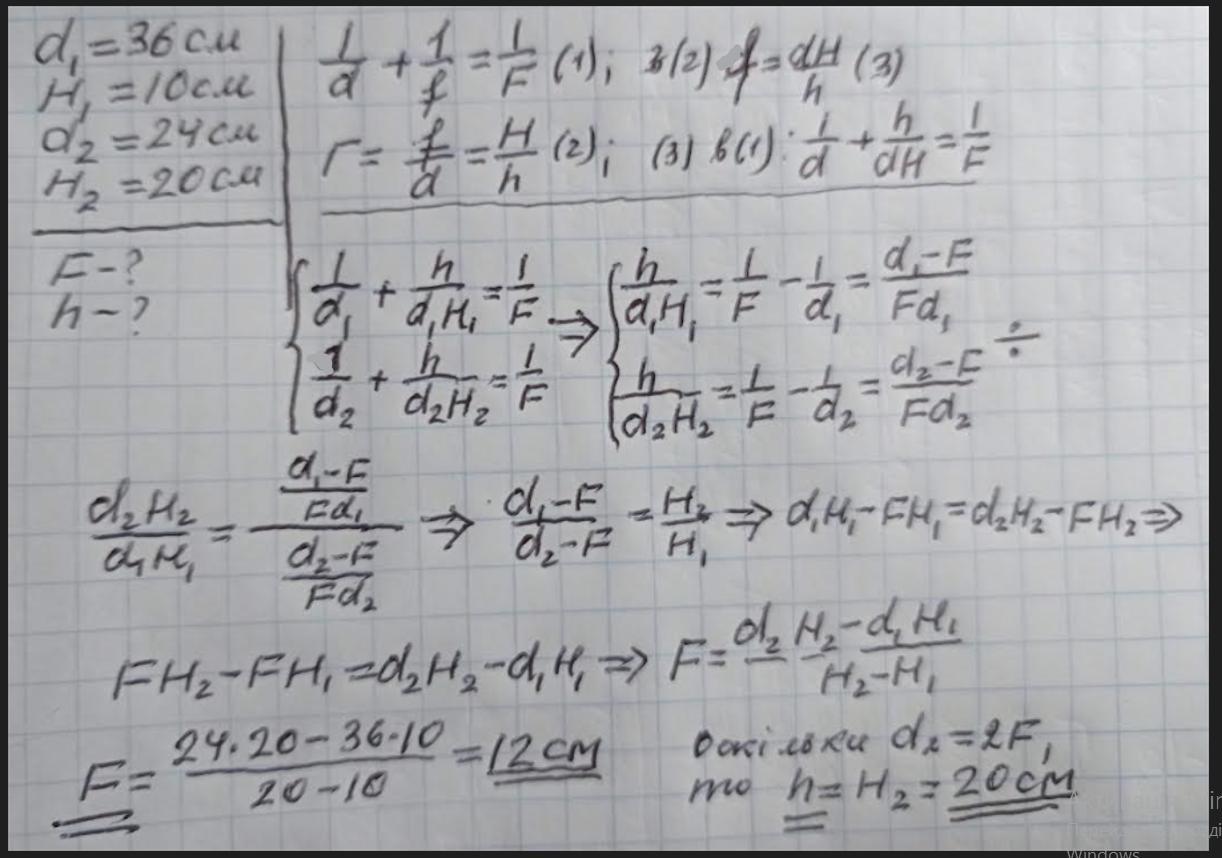 d₁ = 36 см
H₁ = 10 см
d₂ = 24 см
H₂ = 20 см
F – ?
h – ?
1/d + 1/f = 1/F (1); з(2) f = dH/h (3)
Г = f/d = H/h (2); (3) в(1): 1/d + h/dH = 1/F
{ 1/d₁ + h/d₁H₁ = 1/F ⇒ { h/d₁H₁ = 1/F – 1/d₁ = d₁–F/Fd₁
1/d₂ + h/d₂H₂ = 1/F h/d₂H₂ = 1/F – 1/d₂ = d₂–F/Fd₂ ÷
d₂H₂/d₁H₁ = (d₁–F/Fd₁)/(d₂–F/Fd₂) ⇒ d₁–F/d₂–F = H₂/H₁ ⇒ d₁H₁–FH₁ = d₂H₂–FH₂ ⇒
FH₂–FH₁ = d₂H₂–d₁H₁ ⇒ F = d₂H₂–d₁H₁/H₂–H₁
F = 24·20–36·10/20–10 = 12 см
оскільки d₂ = 2F,
то h = H₂ = 20 см
Windows